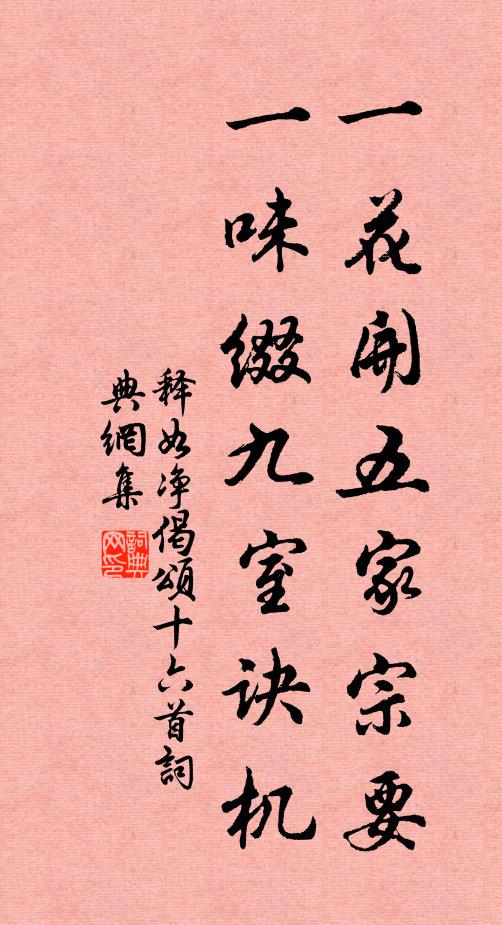 一花開五家宗要
一味缀九室诀机
释如净偈頌十六首詞
典網集
詞典网印